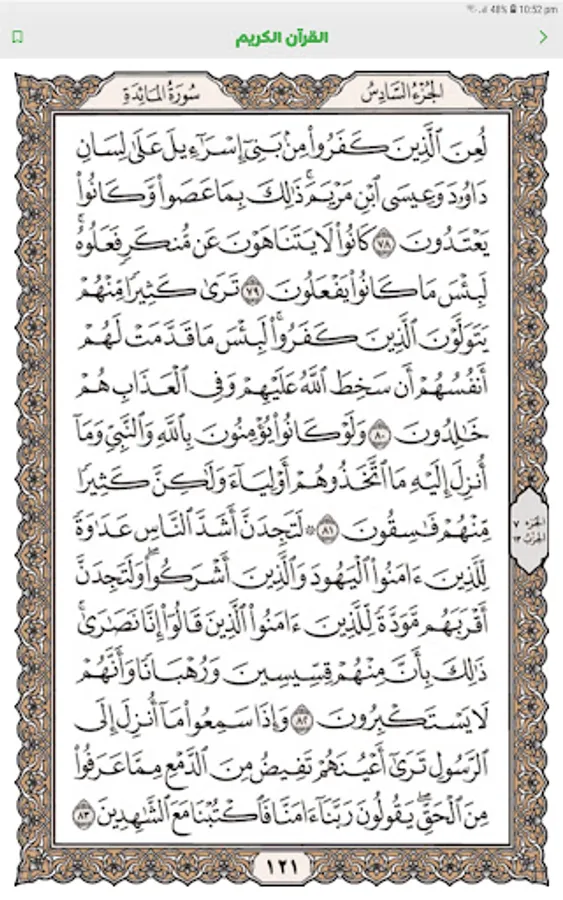 48% 10:52 pm
القرآن الكريم
الجُزْءُ السَّادِسُ
سُورَةُ المَائِدَةِ
لُعِنَ ٱلَّذِينَ كَفَرُوا۟ مِنۢ بَنِىٓ إِسْرَٰٓءِيلَ عَلَىٰ لِسَانِ
دَاوُۥدَ وَعِيسَى ٱبْنِ مَرْيَمَ ۚ ذَٰلِكَ بِمَا عَصَوا۟ وَّكَانُوا۟
يَعْتَدُونَ ٧٨ كَانُوا۟ لَا يَتَنَاهَوْنَ عَن مُّنكَرٍ فَعَلُوهُ ۚ
لَبِئْسَ مَا كَانُوا۟ يَفْعَلُونَ ٧٩ تَرَىٰ كَثِيرًا مِّنْهُمْ
يَتَوَلَّوْنَ ٱلَّذِينَ كَفَرُوا۟ ۚ لَبِئْسَ مَا قَدَّمَتْ لَهُمْ
أَنفُسُهُمْ أَن سَخِطَ ٱللَّهُ عَلَيْهِمْ وَفِى ٱلْعَذَابِ هُمْ
خَٰلِدُونَ ٨٠ وَلَوْ كَانُوا۟ يُؤْمِنُونَ بِٱللَّهِ وَٱلنَّبِىِّ وَمَآ
أُنزِلَ إِلَيْهِ مَا ٱتَّخَذُوهُمْ أَوْلِيَآءَ وَلَٰكِنَّ كَثِيرًا
مِّنْهُمْ فَٰسِقُونَ ٨١ ۞ لَتَجِدَنَّ أَشَدَّ ٱلنَّاسِ عَدَٰوَةً
لِّلَّذِينَ ءَامَنُوا۟ ٱلْيَهُودَ وَٱلَّذِينَ أَشْرَكُوا۟ ۖ وَلَتَجِدَنَّ
أَقْرَبَهُم مَّوَدَّةً لِّلَّذِينَ ءَامَنُوا۟ ٱلَّذِينَ قَالُوٓا۟ إِنَّا نَصَٰرَىٰ ۚ
ذَٰلِكَ بِأَنَّ مِنْهُمْ قِسِّيسِينَ وَرُهْبَانًا وَأَنَّهُمْ
لَا يَسْتَكْبِرُونَ ٨٢ وَإِذَا سَمِعُوا۟ مَآ أُنزِلَ إِلَى
ٱلرَّسُولِ تَرَىٰٓ أَعْيُنَهُمْ تَفِيضُ مِنَ ٱلدَّمْعِ مِمَّا عَرَفُوا۟
مِنَ ٱلْحَقِّ ۖ يَقُولُونَ رَبَّنَآ ءَامَنَّا فَٱكْتُبْنَا مَعَ ٱلشَّٰهِدِينَ ٨٣
الجزء ٧
الحزب ١٣
١٢١